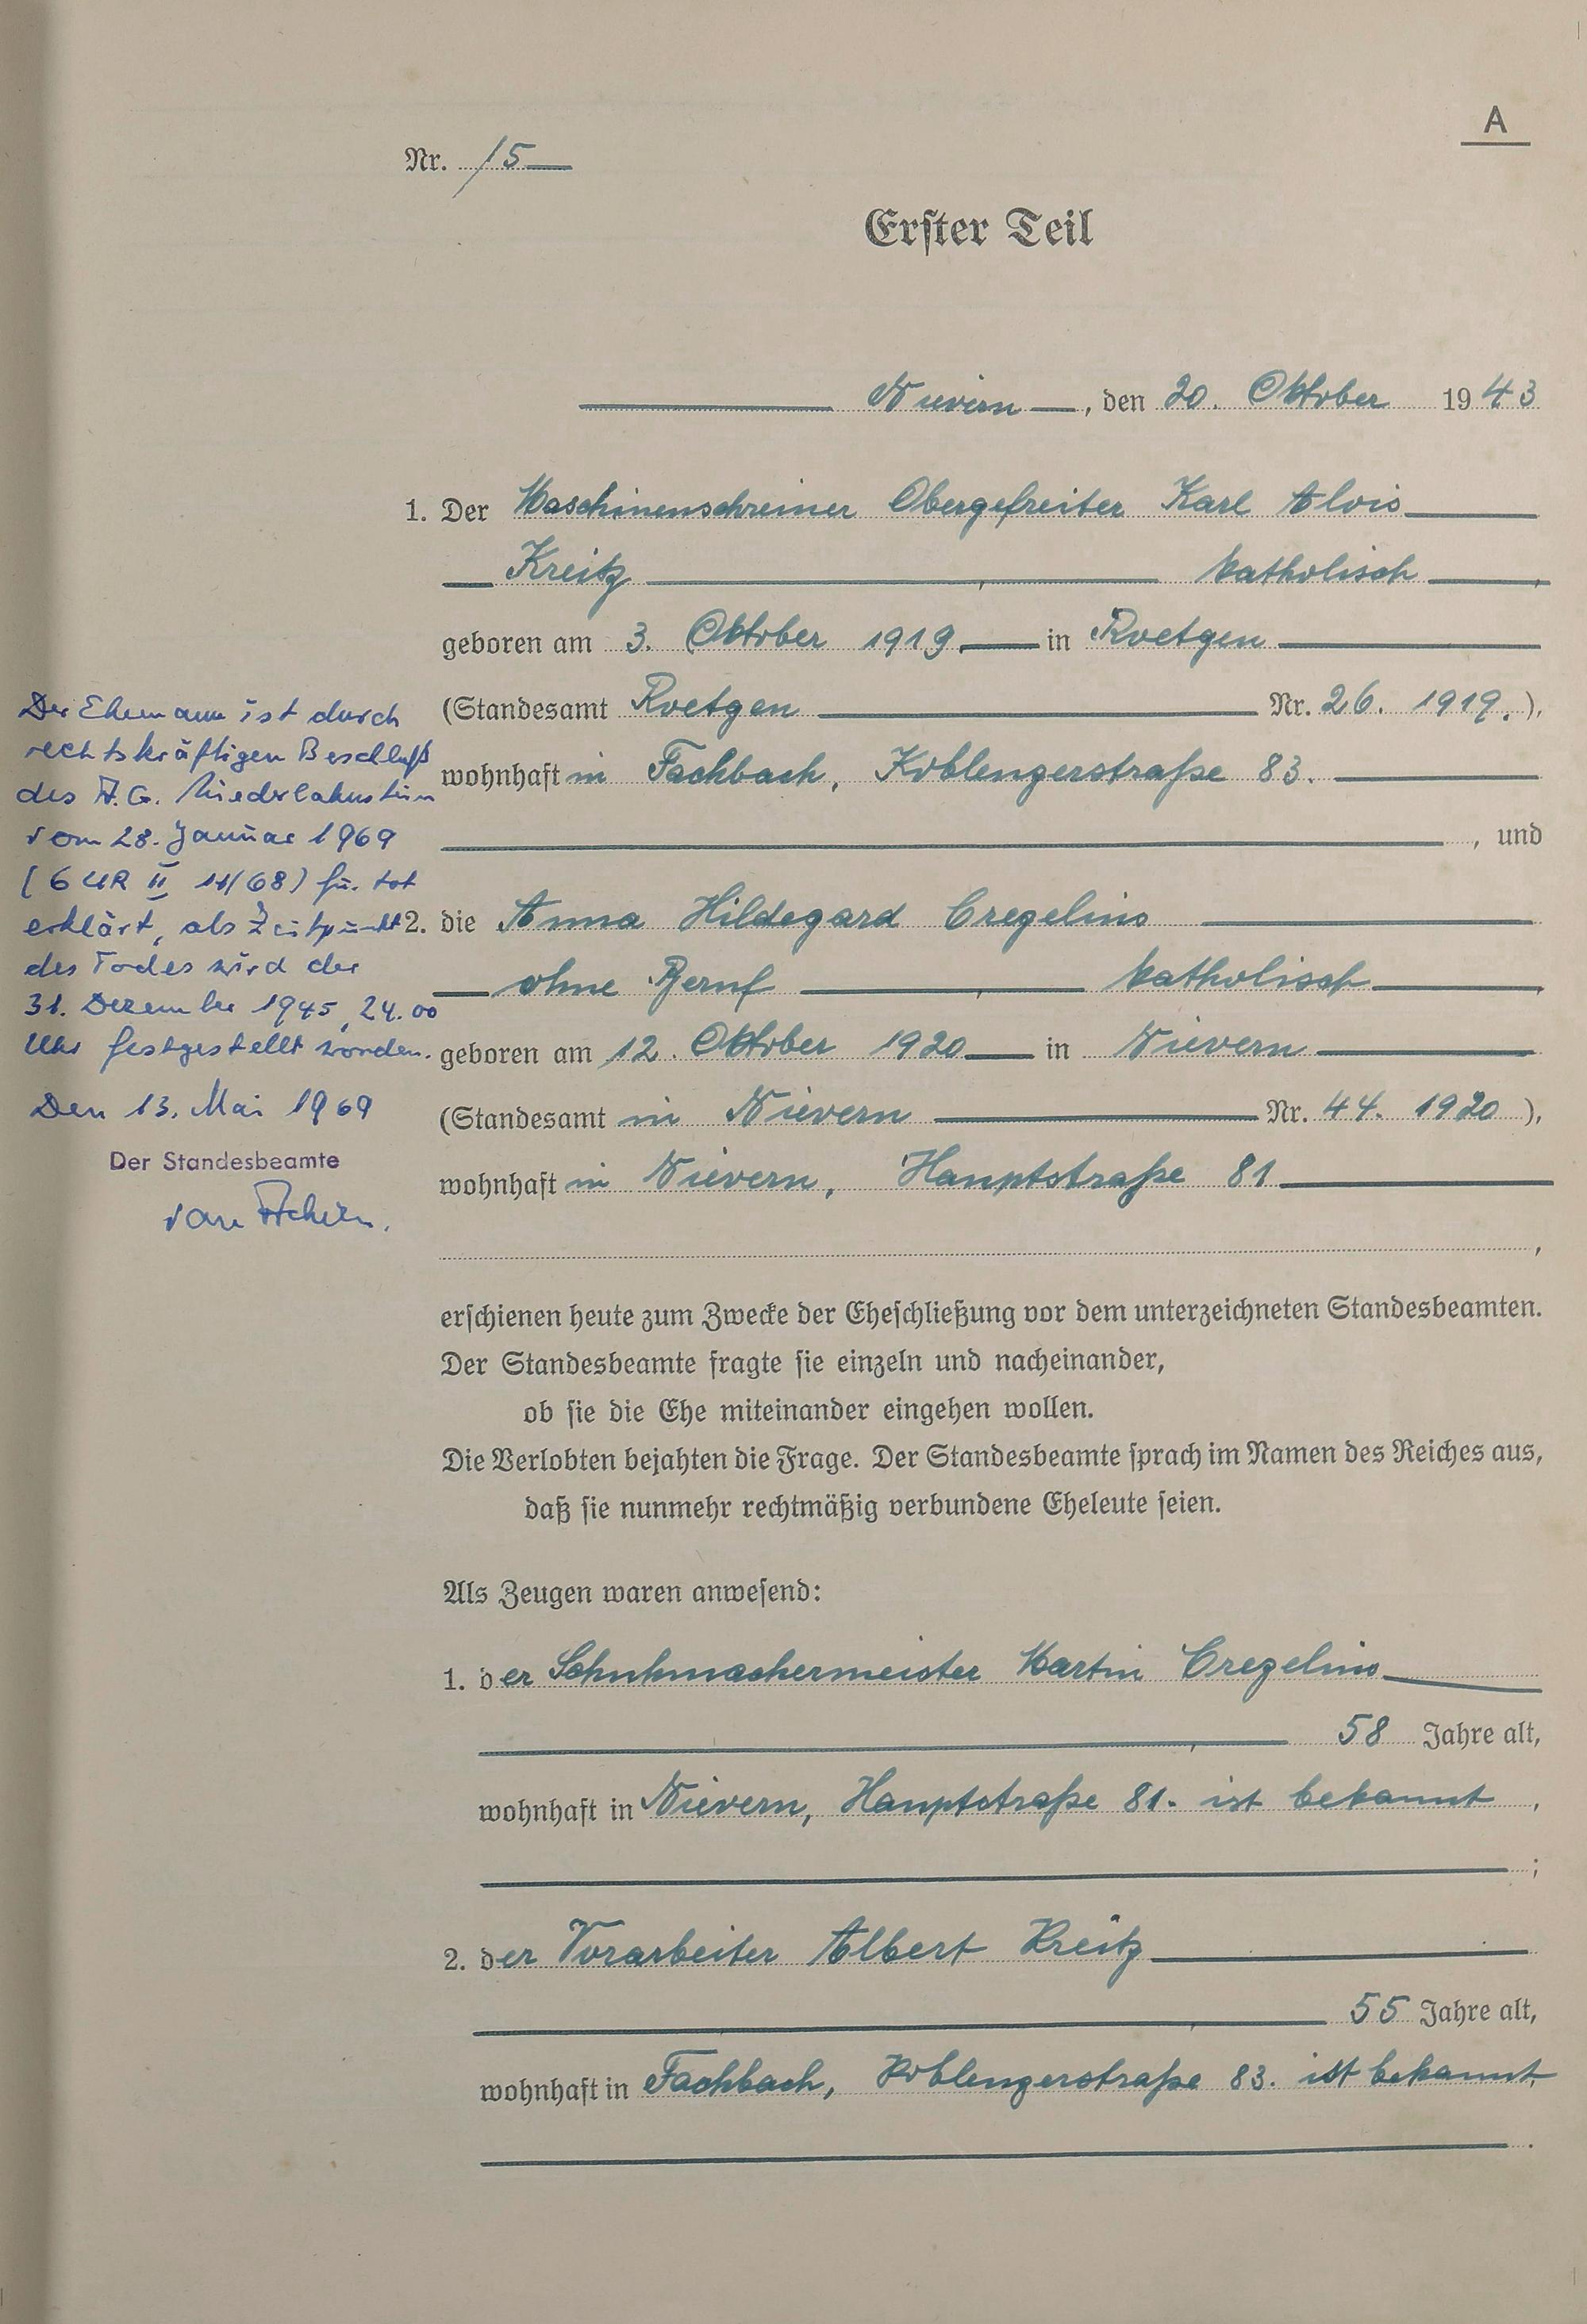 A
Nr. 15
Erster Teil
Nievern, den 20. Oktober 1943
1. Der Maschinenschreiner Obergefreiter Karl Alois
Kreitz, katholisch,
geboren am 3. Oktober 1919 in Roetgen
(Standesamt Roetgen Nr. 26. 1919.),
wohnhaft in Fachbach, Koblenzerstraße 83.
, und
2. die Anna Hildegard Cregelius
ohne Beruf, katholisch,
geboren am 12. Oktober 1920 in Nievern
(Standesamt in Nievern Nr. 44. 1920),
wohnhaft in Nievern, Hauptstraße 81
,
Der Ehemann ist durch
rechtskräftigen Beschluß
des A.G. Niederlahnstein
vom 28. Januar 1969
(6 UR II 11/68) für tot
erklärt, als Zeitpunkt
des Todes wird der
31. Dezember 1945, 24.00
Uhr festgestellt worden.
Den 13. Mai 1969
Der Standesbeamte
erschienen heute zum Zwecke der Eheschließung vor dem unterzeichneten Standesbeamten.
Der Standesbeamte fragte sie einzeln und nacheinander,
ob sie die Ehe miteinander eingehen wollen.
Die Verlobten bejahten die Frage. Der Standesbeamte sprach im Namen des Reiches aus,
daß sie nunmehr rechtmäßig verbundene Eheleute seien.
Als Zeugen waren anwesend:
1. der Schuhmachermeister Martin Cregelius
, 58 Jahre alt,
wohnhaft in Nievern, Hauptstraße 81. ist bekannt,
;
2. der Vorarbeiter Albert Kreitz
, 55 Jahre alt,
wohnhaft in Fachbach, Koblenzerstraße 83. ist bekannt,
.